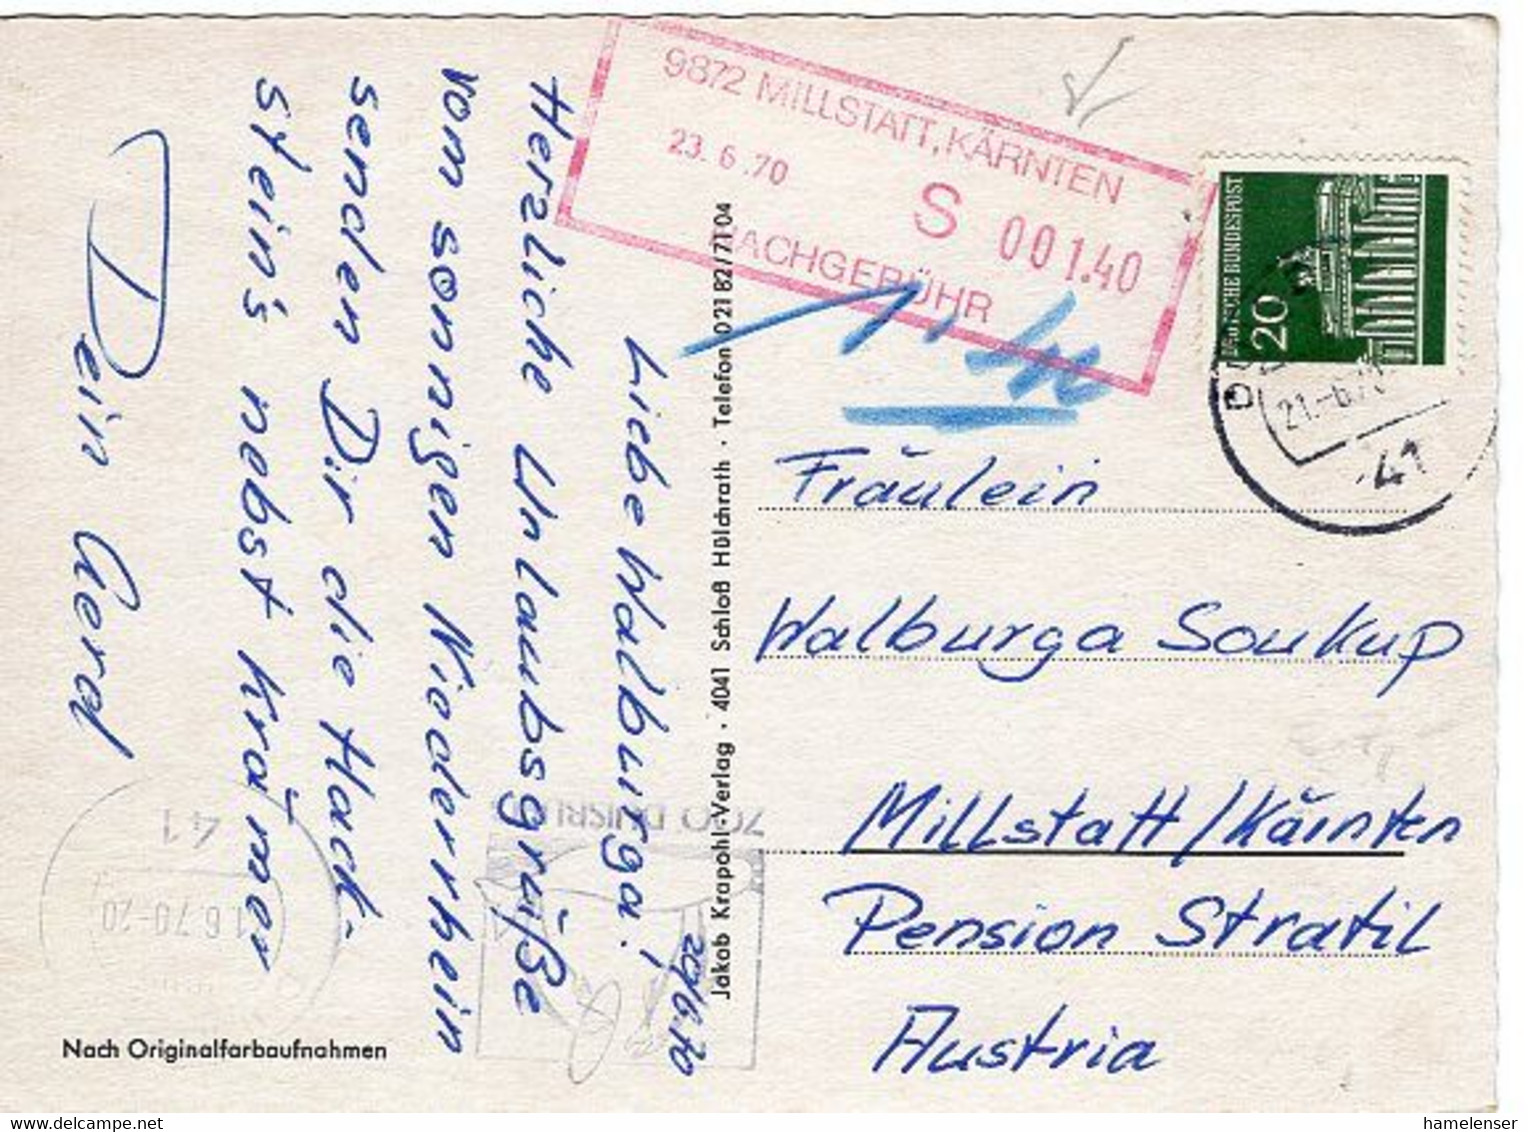 9872 MILLSTATT, KÄRNTEN
23. 6. 70
S 001.40
NACHGEBÜHR
DEUTSCHE BUNDESPOST
20
21.-6.70
41
20/6.70
Liebe Walburga!
Herzliche Urlaubsgrüße
vom sonnigen Niederrhein
senden Dir die Hack-
stein's nebst Krämer
Dein Gerd
Jakob Krapohl-Verlag · 4041 Schloß Hülchrath · Telefon 02182/7104
Fräulein
Walburga Soukup
Millstatt/Kärnten
Pension Stratil
Austria
41
1.6.70-20
Nach Originalfarbaufnahmen
hamelenser